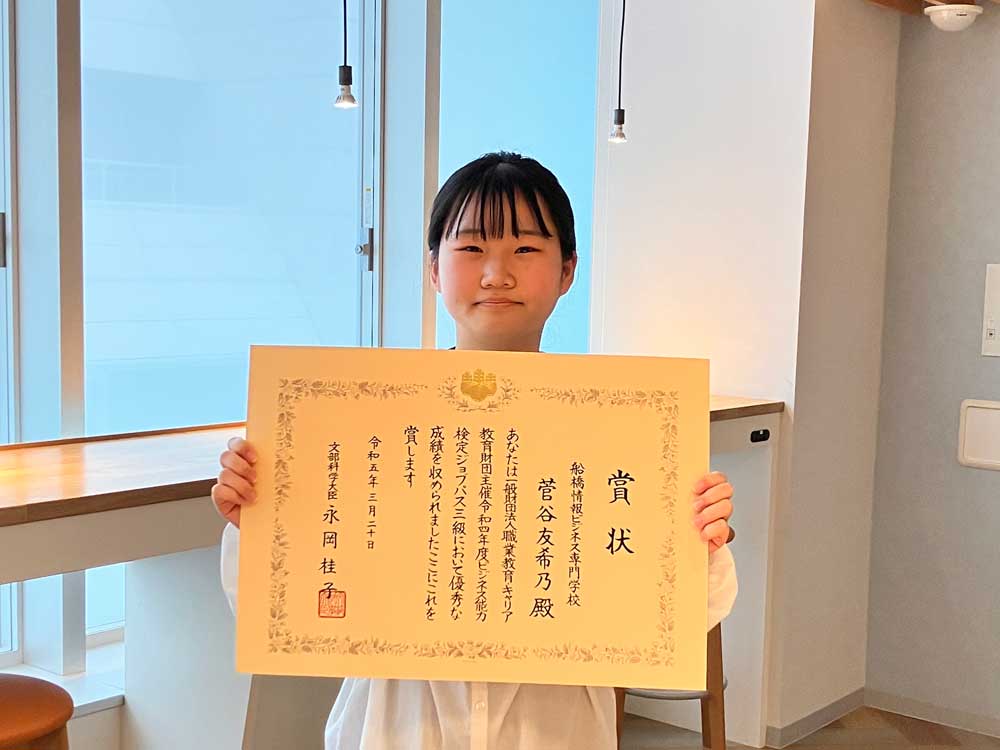 賞状
船橋情報ビジネス専門学校
菅谷友希乃殿
あなたは一般財団法人職業教育・キャリア
教育財団主催令和四年度ビジネス能力
検定ジョブパス三級において優秀な
成績を収められましたここにこれを
賞します
令和五年三月二十日
文部科学大臣 永岡桂子